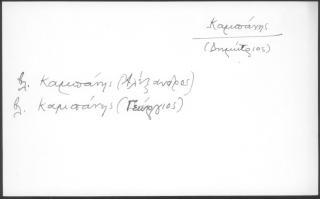 Καμπάνης
(Δημήτριος)
βλ. Καμπάνης (Αλέξανδρος)
βλ. Καμπάνης (Γεώργιος)